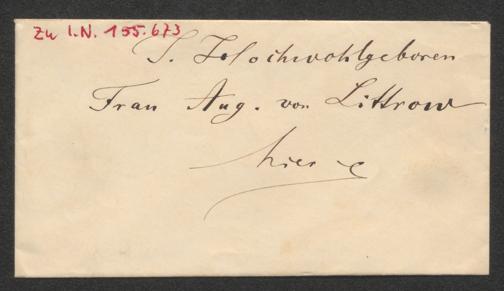 Zu I.N. 155.673
S. Hochwohlgeboren
Frau Aug. von Littrow
hier